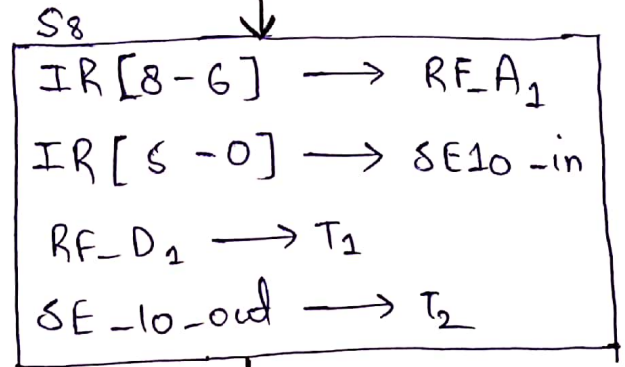 S8
IR [8-6] → RF_A1
IR [5-0] → SE10_in
RF_D1 → T1
SE_10_out → T2